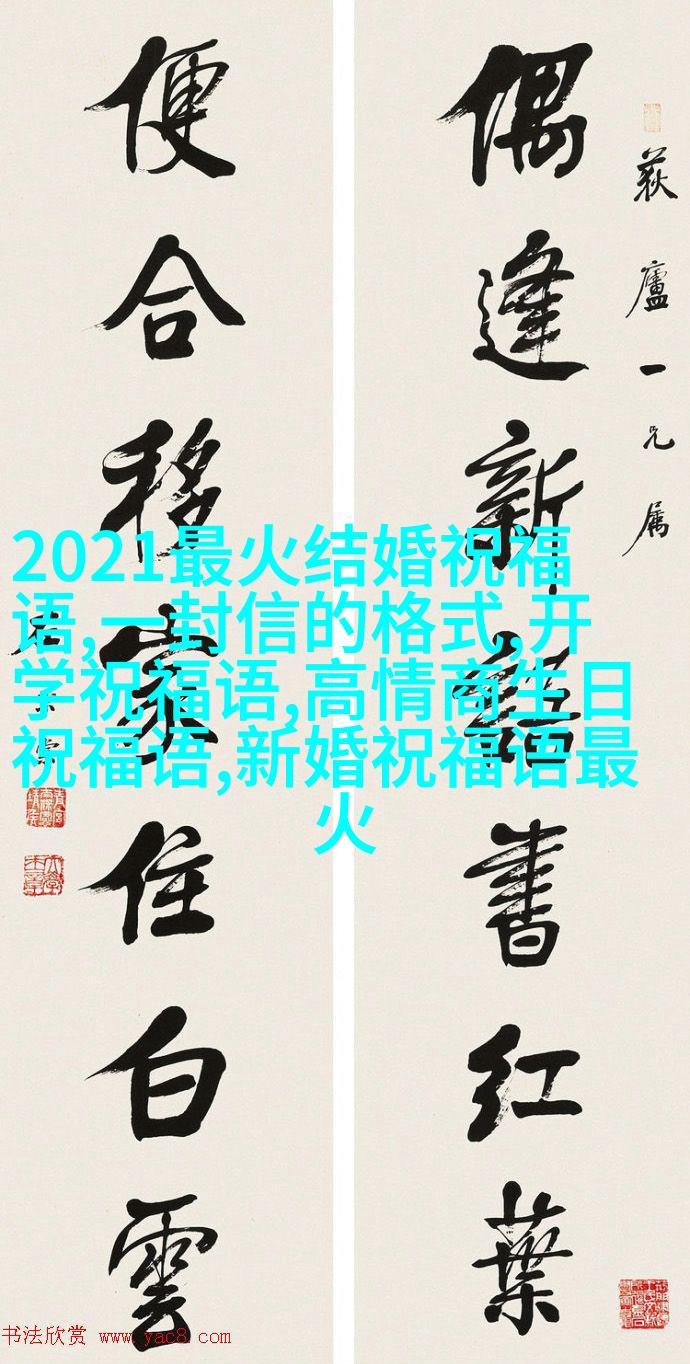 荻廬一兄屬
偶逢新語書紅葉
便合移家住白雲
2021最火结婚祝福
语,一封信的格式,开
学祝福语,高情商生日
祝福语,新婚祝福语最
火
书法欣赏 www.yac8.com